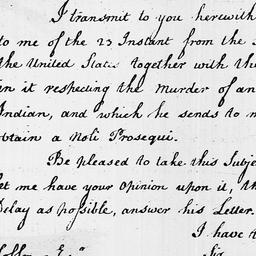 I transmit to you herewith
to me of the 23 Instant from the
the United States together with the
in it respecting the Murder of an
Indian, and which he sends to m
btain a Noli Prosequi.
Be pleased to take this Subje
et me have your Opinion upon it, th
Delay as possible, answer his Letter.
I have t
Sir